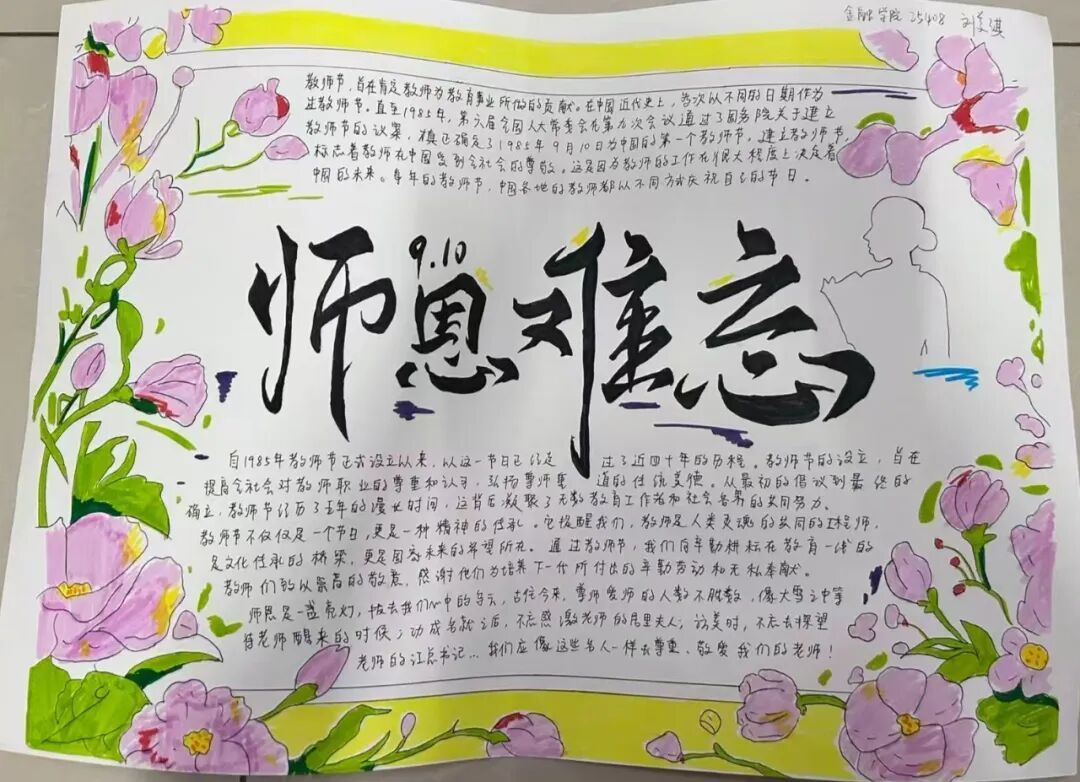 金融学院 25408 刘美琪
教师节,旨在肯定教师为教育事业所做的贡献。在中国近代史上,多次以不同的日期作为
过教师节。直至1985年,第六届全国人大常委会第九次会议通过了国务院关于建立
教师节的议案,真正确定了1985年9月10日为中国的第一个教师节,建立教师节
标志着教师在中国受到全社会的尊敬。这是因为教师的工作在很大程度上决定着
中国的未来。每年的教师节,中国各地的教师都以不同方式庆祝自己的节日。
9.10
师恩难忘
自1985年教师节正式设立以来,以这一节日已经走过了近四十年的历程。教师节的设立,旨在
提高全社会对教师职业的尊重和认可,弘扬尊师重道的传统美德。从最初的倡议到最终的
确立,教师节经历了五年的漫长时间,这背后凝聚了无数教育工作者和社会各界的共同努力。
教师节不仅仅是一个节日,更是一种精神的传承。它提醒我们,教师是人类灵魂的共同的工程师,
是文化传承的桥梁,更是国家未来的希望所在。通过教师节,我们向辛勤耕耘在教育一线的
教师们致以崇高的敬意,感谢他们为培养下一代所付出的辛勤劳动和无私奉献。
师恩是一盏亮灯,抹去我们心中的乌云,古往今来,尊师爱师的人数不胜数,像大雪中等
待老师醒来的时候;功成名就之后,不忘感谢老师的居里夫人;访美时,不忘去探望
老师的江总书记...我们应像这些名人一样去尊重、敬爱我们的老师!